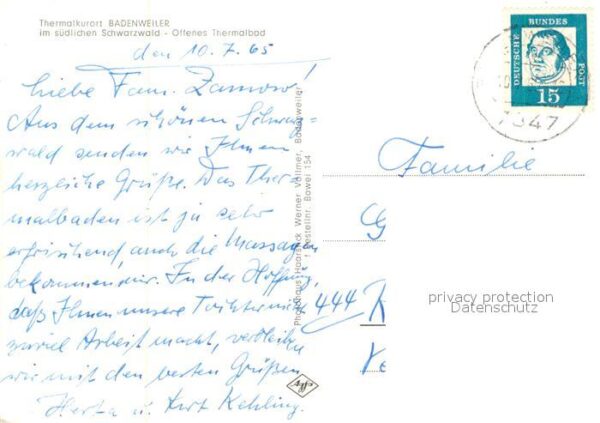 Thermalkurort BADENWEILER
im südlichen Schwarzwald - Offenes Thermalbad
den 10.7.65
Liebe Fam. Zamow!
Aus dem schönen Schwarz-
wald senden wir Ihnen
herzliche Grüße. Das Ther-
malbaden ist ja sehr
erfrischend, auch die Massagen
bekommen mir. In der Hoffnung,
daß Ihnen unsere Tochter nicht
zuviel Arbeit macht, verbleiben
wir mit den besten Grüßen
Herta u. Kurt Kehling.
Photohaus Haarstick Werner Vollmer, Badenweiler
Bestellnr. Bawei 154
DEUTSCHE BUNDES POST
15
7847
Familie
G
444 K
privacy protection
Datenschutz